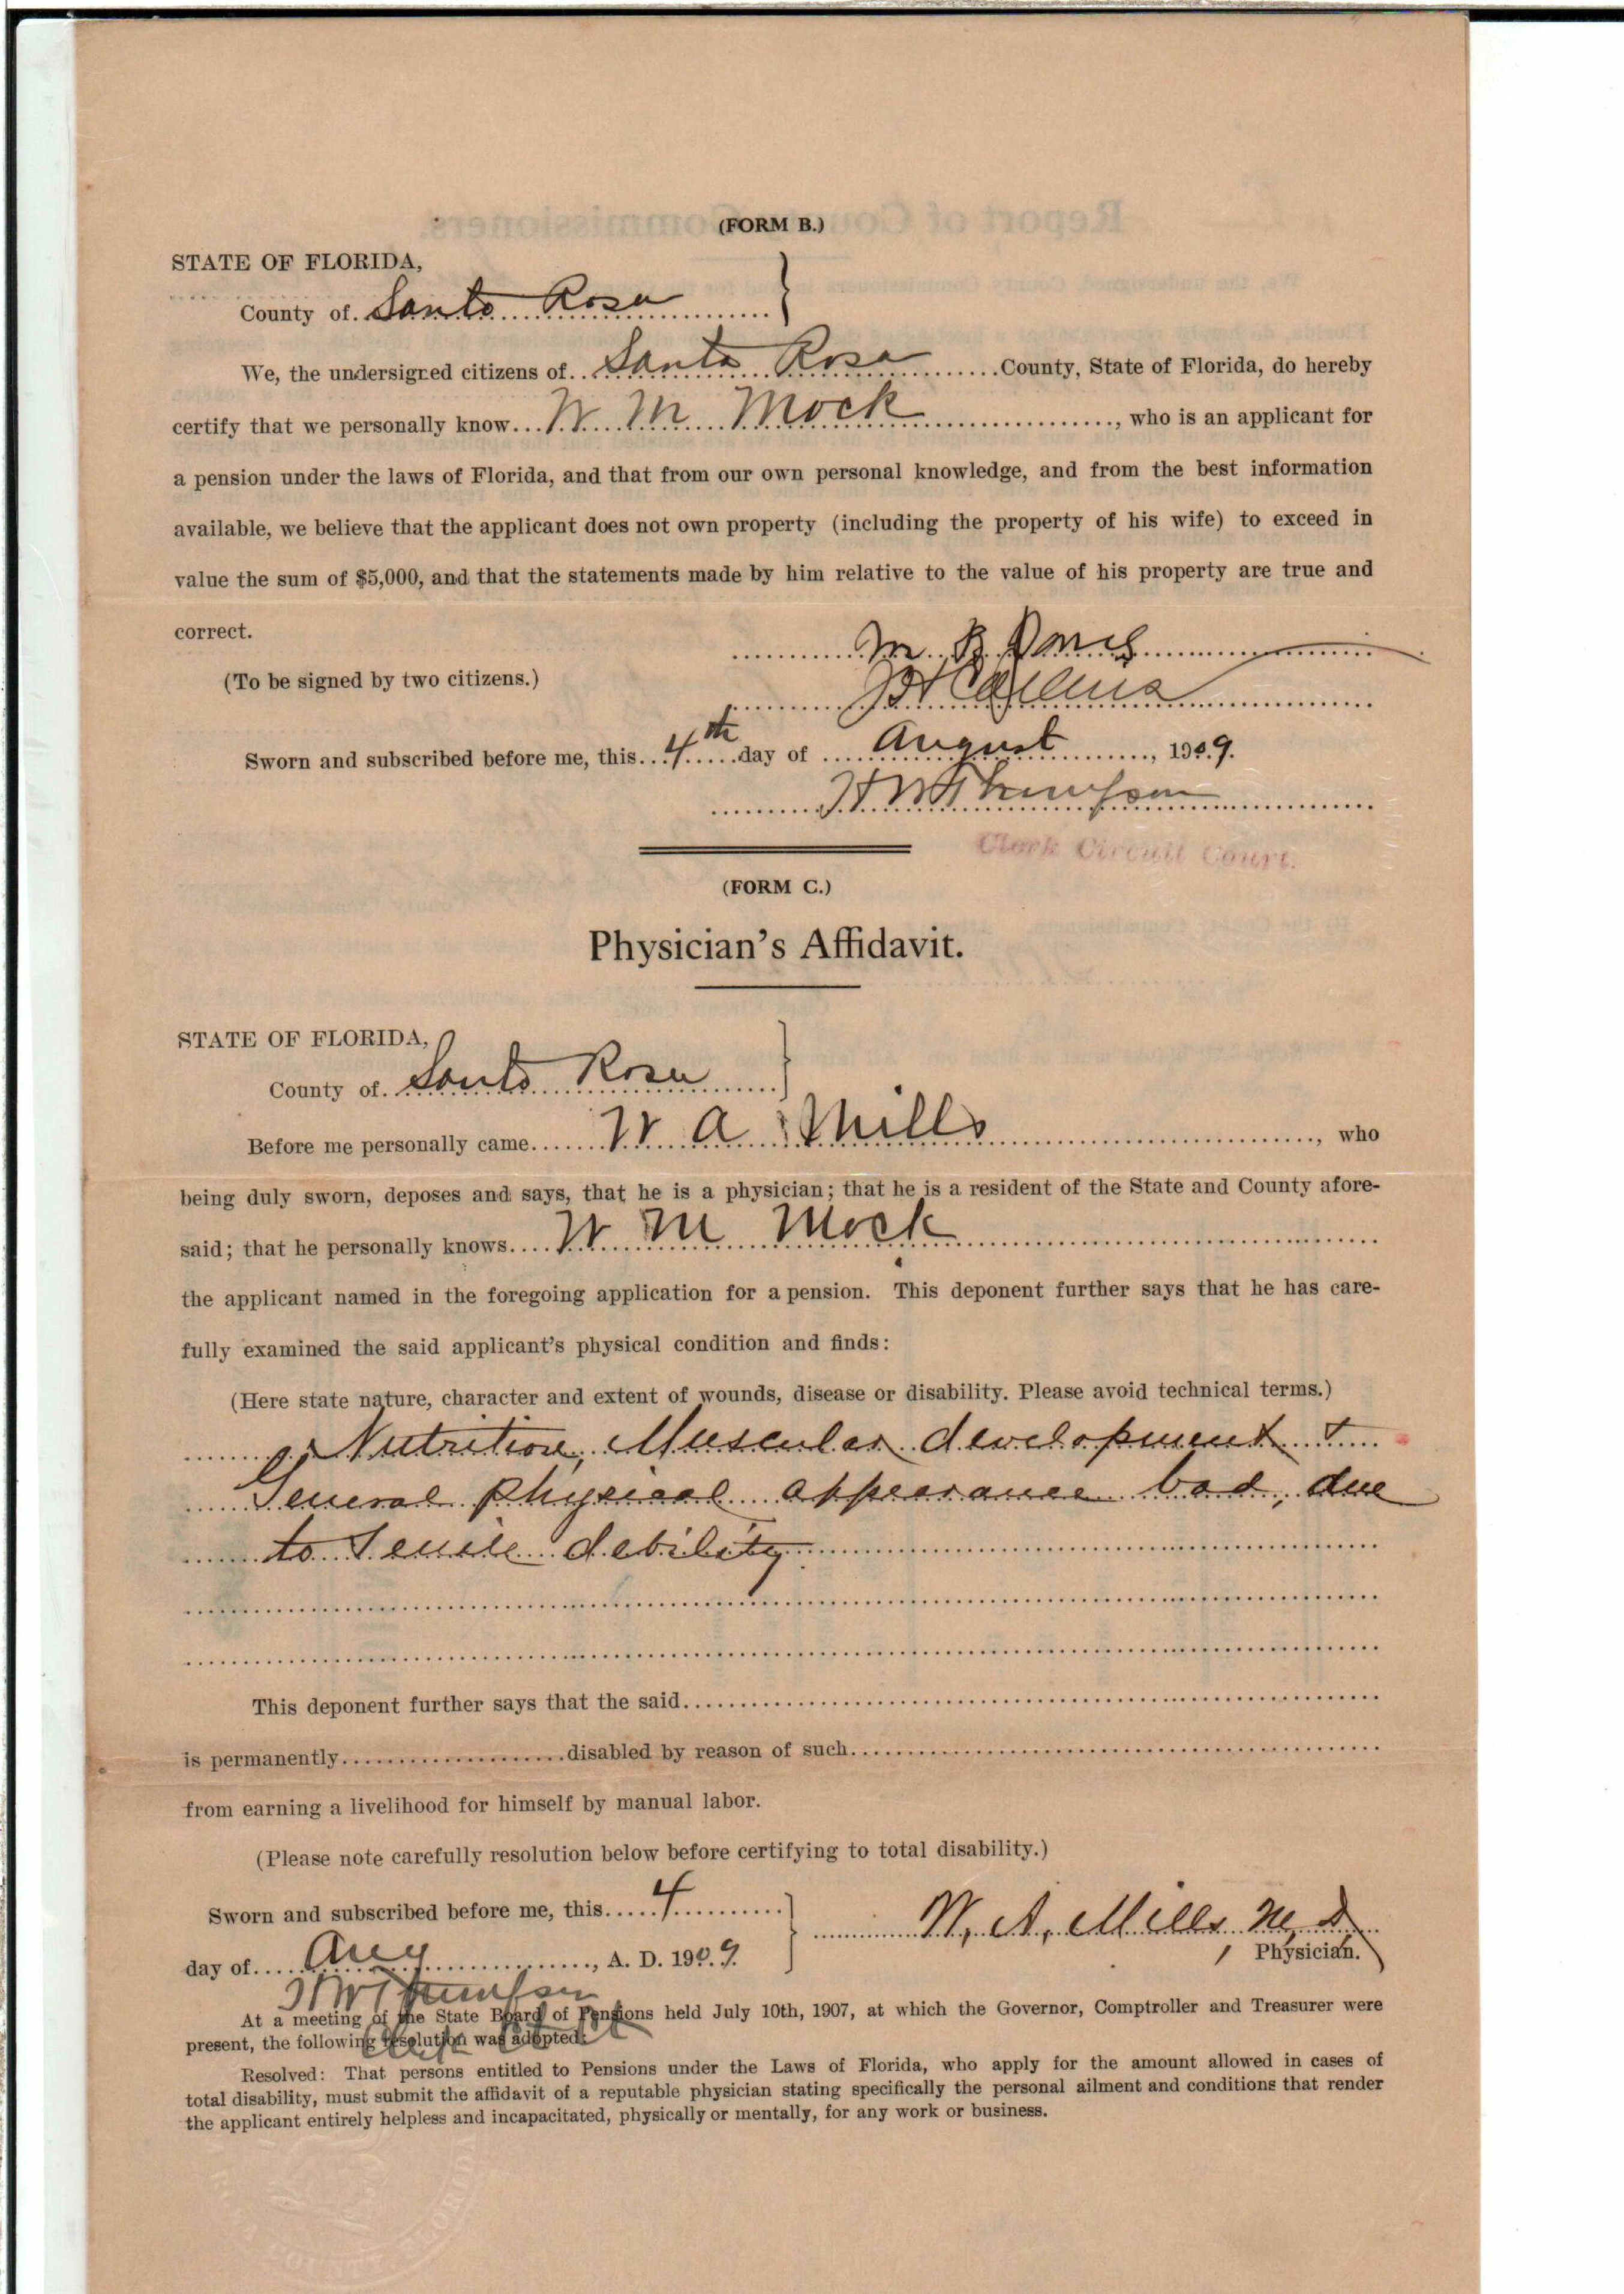 (FORM B.)
STATE OF FLORIDA,
County of Santa Rosa
We, the undersigned citizens of Santa Rosa County, State of Florida, do hereby
certify that we personally know W M Mock, who is an applicant for
a pension under the laws of Florida, and that from our own personal knowledge, and from the best information
available, we believe that the applicant does not own property (including the property of his wife) to exceed in
value the sum of $5,000, and that the statements made by him relative to the value of his property are true and
correct.
M B
(To be signed by two citizens.)
Sworn and subscribed before me, this 4th day of August, 1909.
H W Thompson
Clerk Circuit Court.
(FORM C.)
Physician's Affidavit.
STATE OF FLORIDA,
County of Santa Rosa
Before me personally came W A Mills, who
being duly sworn, deposes and says, that he is a physician; that he is a resident of the State and County afore-
said; that he personally knows W M Mock
the applicant named in the foregoing application for a pension. This deponent further says that he has care-
fully examined the said applicant's physical condition and finds:
(Here state nature, character and extent of wounds, disease or disability. Please avoid technical terms.)
Nutrition, Muscular development &
General physical appearance bad, due
to Senile debility.
This deponent further says that the said
is permanently disabled by reason of such
from earning a livelihood for himself by manual labor.
(Please note carefully resolution below before certifying to total disability.)
Sworn and subscribed before me, this 4
W. A. Mills M, D
day of Aug, A. D. 1909.
Physician.
H W Thompson
At a meeting of the State Board of Pensions held July 10th, 1907, at which the Governor, Comptroller and Treasurer were
present, the following resolution was adopted:
Resolved: That persons entitled to Pensions under the Laws of Florida, who apply for the amount allowed in cases of
total disability, must submit the affidavit of a reputable physician stating specifically the personal ailment and conditions that render
the applicant entirely helpless and incapacitated, physically or mentally, for any work or business.